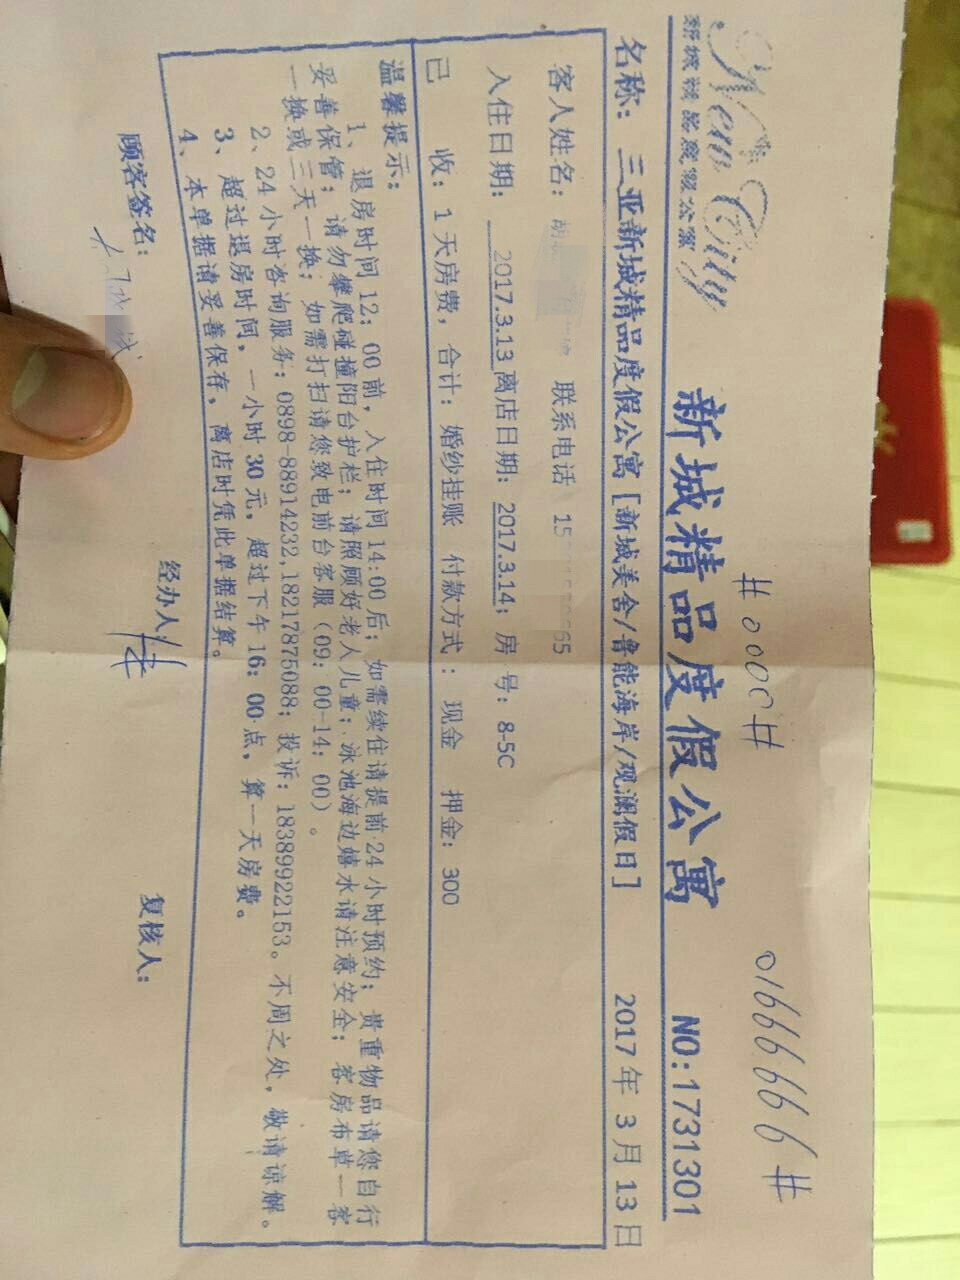 #000C# 01666666#
New City
新城精品度假公寓
新城精品度假公寓 NO:1731301
名称：三亚新城精品度假公寓［新城美舍/鲁能海岸/观澜假日］ 2017 年 3 月 13 日
客人姓名：胡 联系电话 15 65
入住日期： 2017.3.13离店日期：2017.3.14；房 号：8-5C
已 收：1 天房费，合计：婚纱挂账 付款方式：现金 押金：300
温馨提示：
1、退房时间 12：00 前，入住时间14:00 后；如需续住请提前 24 小时预约；贵重物品请您自行
妥善保管；请勿攀爬碰撞阳台护栏；请照顾好老人儿童；泳池海边嬉水请注意安全；客房布草一客
一换或三天一换；如需打扫请您致电前台客服（09：00-14：00）。
2、24 小时咨询服务：0898-88914232,18217875088；投诉：18389922153。不周之处，敬请谅解。
3、超过退房时间，一小时 30 元，超过下午 16：00 点，算一天房费。
4、本单据请妥善保存，离店时凭此单据结算。
顾客签名： 经办人： 复核人：